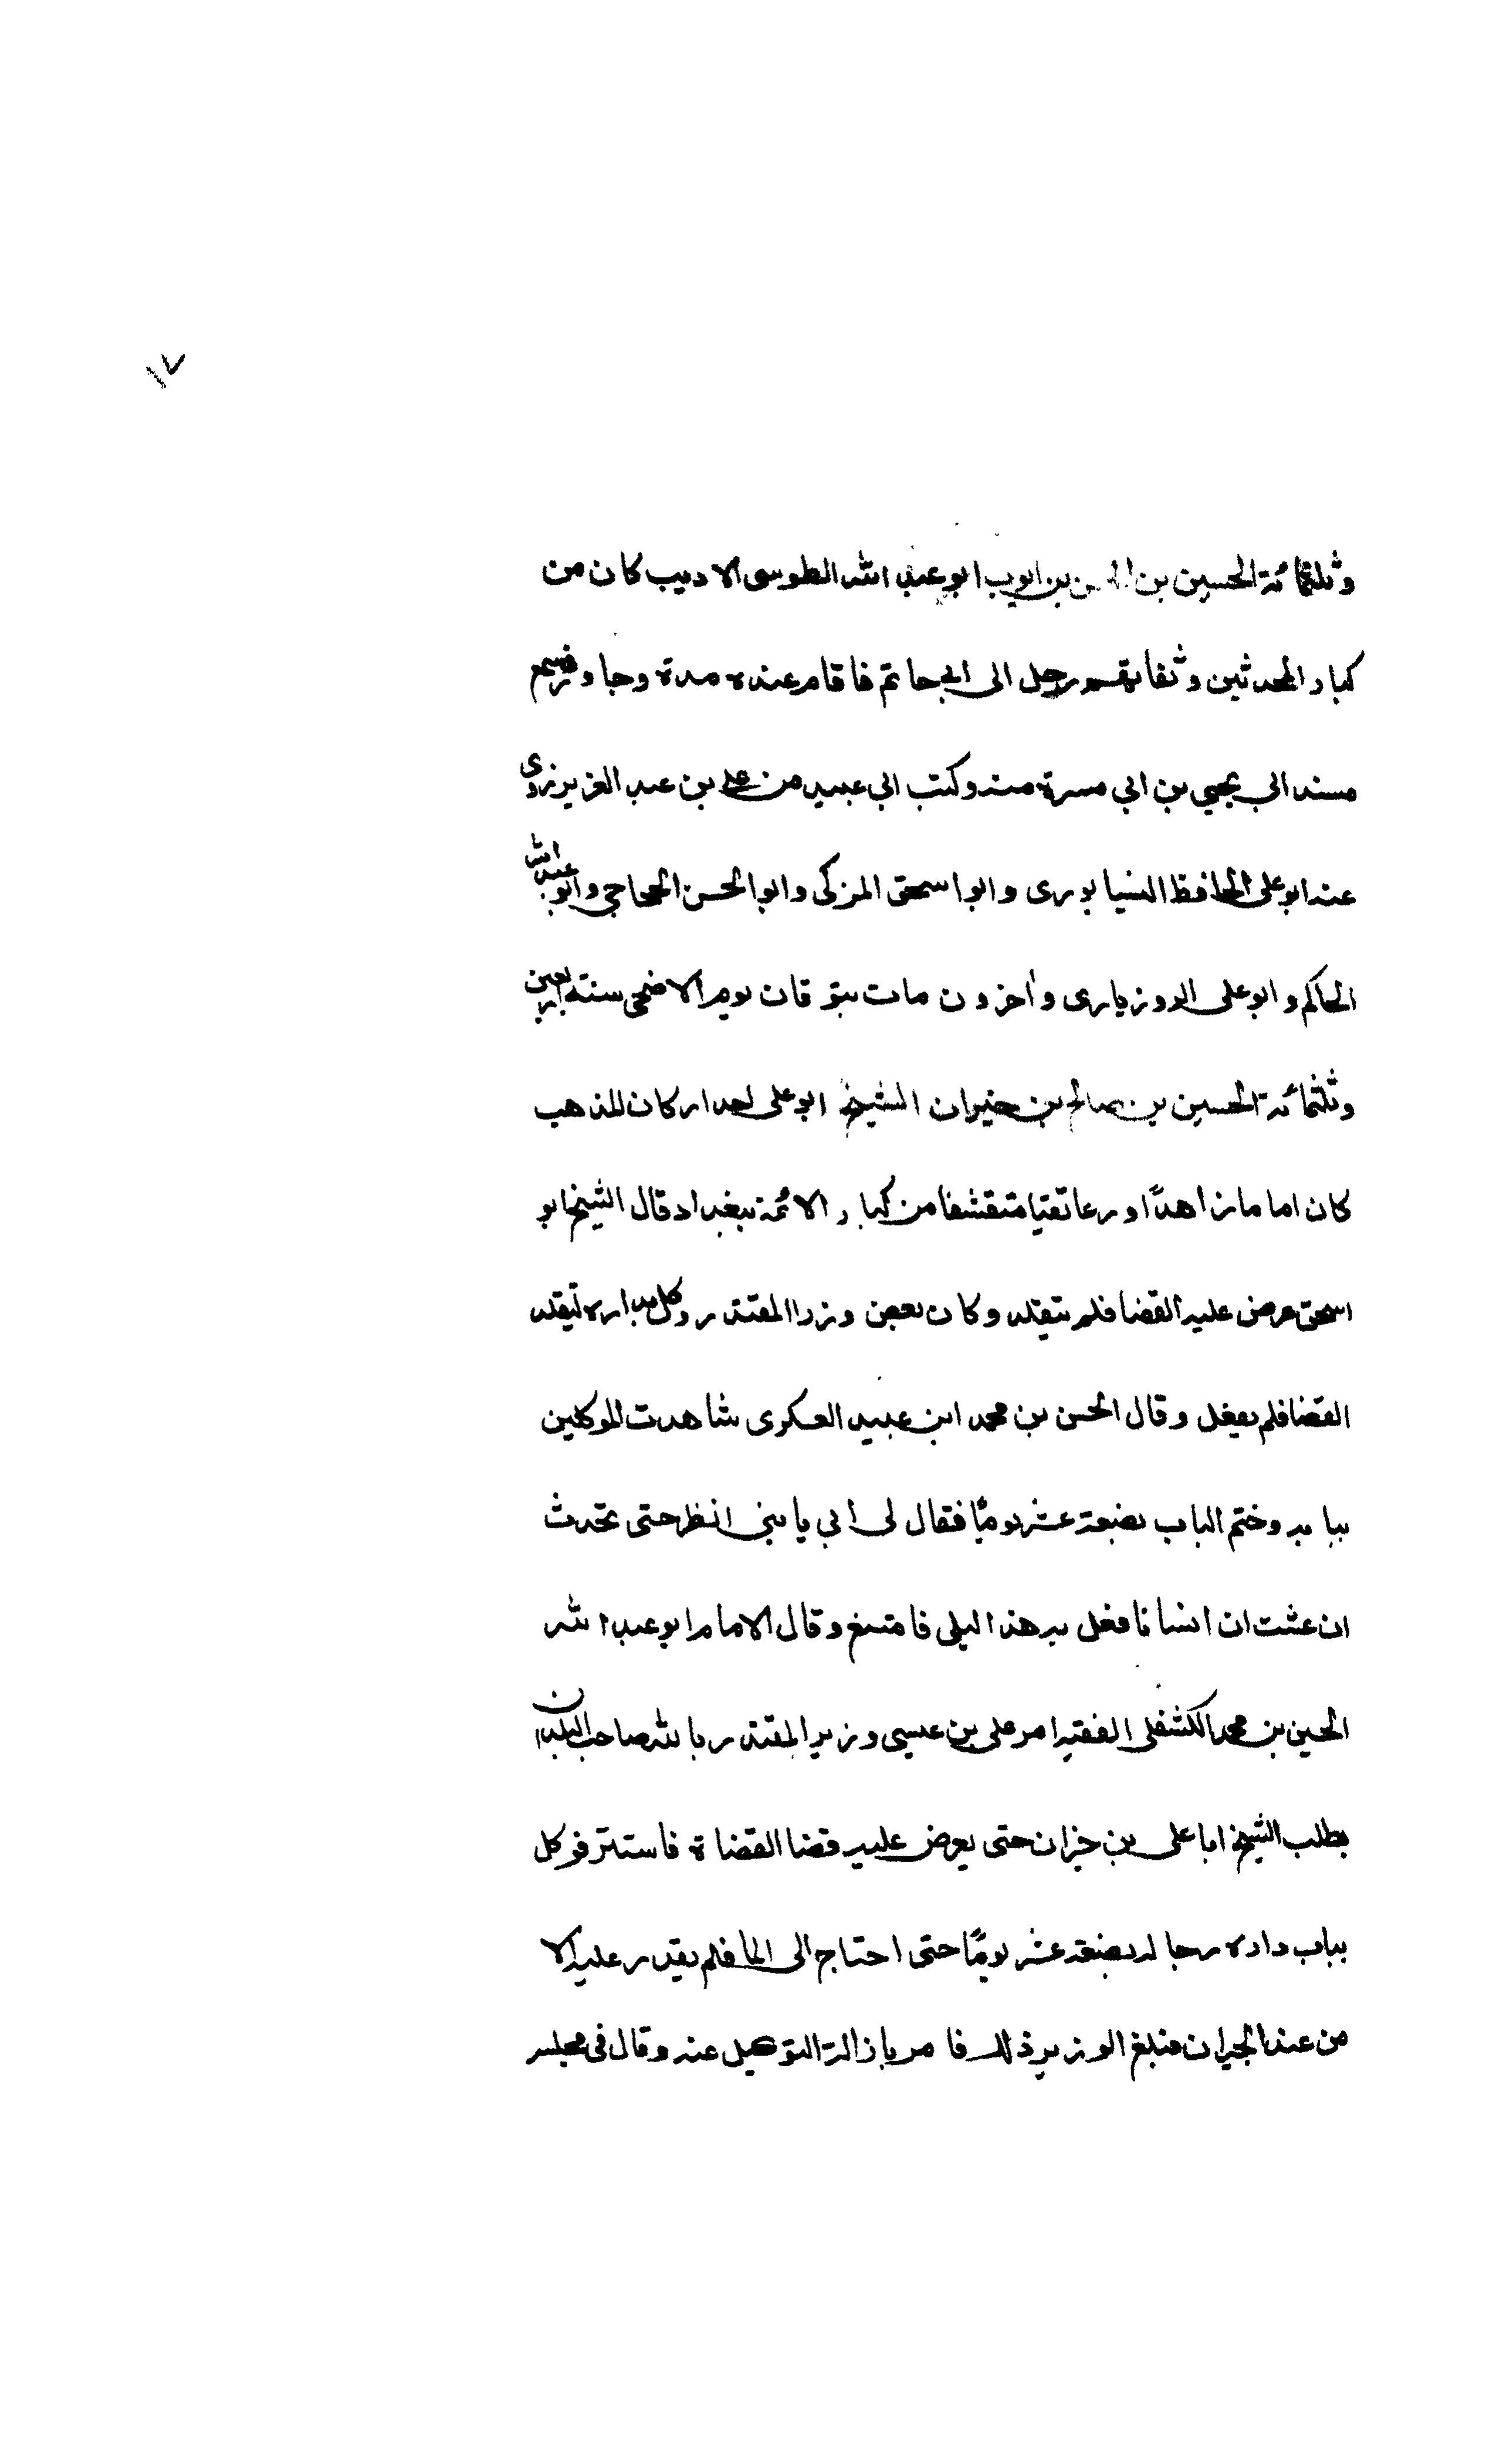 ١٧
وثلثمائة الحسين بن الحسن بن ايوب ابو عبد الله الطوسى الاديب كان من
كبار المحدثين وثقاتهم رحل الى ابي حاتم فاقام عنده مدة وجاور فسمع
مسند ابي يحيي بن ابي مسرة منه وكتب ابي عبيد من علي بن عبد العزيز روى
عنه ابو على الحافظ النيسابورى وابو اسحق المزكى وابو الحسن الحجاجي وابو عبد الله
الحاكم وابو على الروزبارى واخرون مات بنوقان يوم الاضحى سنة اربعين
وثلثمائة الحسين بن صالح بن خيران الشيخ ابو على احد اركان المذهب
كان اماما زاهدًا ورعا تقيا متقشفا من كبار الائمة ببغداد قال الشيخ ابو
اسحق عرض عليه القضا فلم يتقلد وكان بعض وزرا المقتدر وكل بداره ليقلد
القضا فلم يفعل وقال الحسن بن محمد ابن عبيد العسكرى شاهدت الموكلين
ببابه وختم الباب بضعة عشر يومًا فقال لى ابي يا بني انظر حتى تحدث
ان عشت ان انسانا فعل به هذا ليلى فامتنع وقال الامام ابو عبد الله
الحسين بن محمد الكشفلى الفقيه امر على بن عيسى وزير المقتدر بالله صاحب البلدان
بطلب الشيخ ابا على بن خيران حتى يعرض عليه قضا القضاة فاستتر فوكل
بباب داره رجاله بضعة عشر يومًا حتى احتاج الى الما فلم يقدر عليه الا
من عند الجيران فبلغ الوزير ذلك فامر بازالة التوكيل عنه وقال فى مجلسه